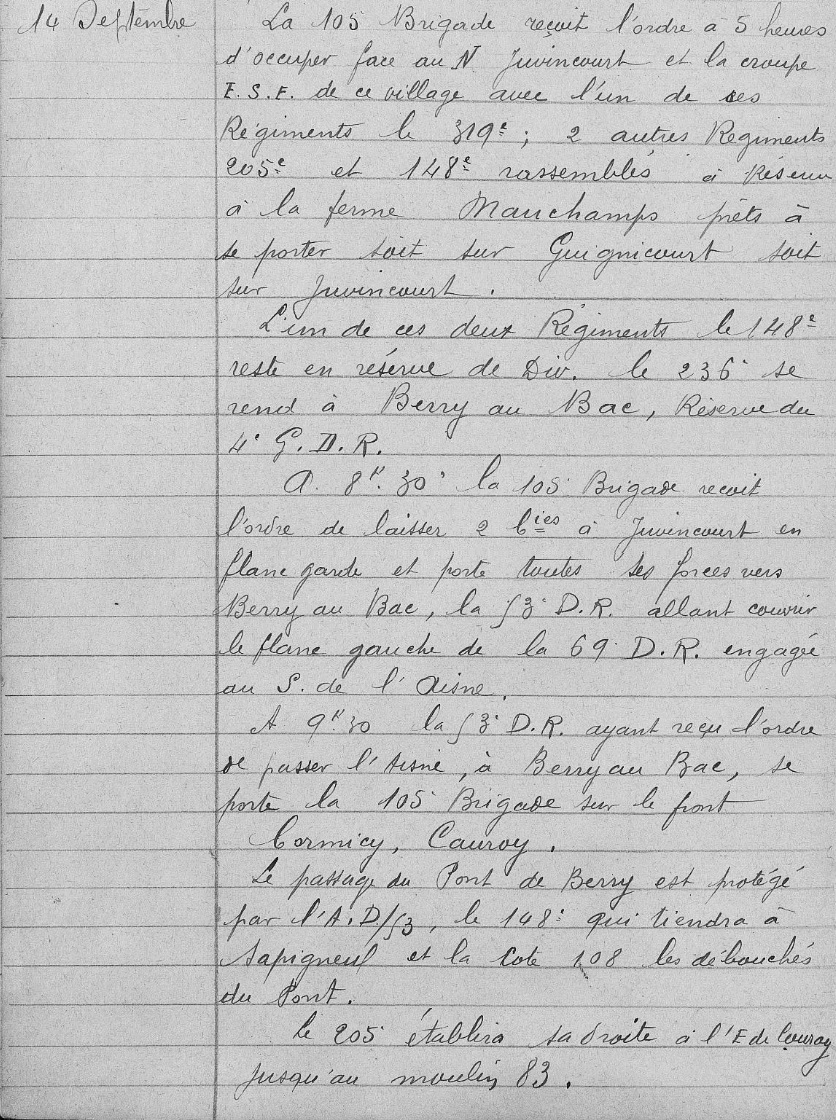 14 Septembre
La 105 Brigade reçoit l'ordre à 5 heures
d'occuper face au N Juvincourt et la croupe
E.S.E. de ce village avec l'un de ses
Régiments le 319e; 2 autres Régiments
205e et 148e rassemblés à
à la ferme Mauchamps prêts à
se porter soit sur Guignicourt soit
sur Juvincourt.
L'un de ces deux Régiments le 148e
reste en réserve de Div. le 236e se
rend à Berry au Bac, Réserve du
4e G.D.R.
A 8h.30' la 105e Brigade recoit
l'ordre de laisser 2 bies à Juvincourt en
flanc garde et porte toutes ses forces vers
Berry au Bac, la 53e D.R. allant couvrir
le flanc gauche de la 69e D.R. engagée
au S. de l'Aisne.
A 9h30 la 53e D.R. ayant reçu l'ordre
de passer l'Aisne, à Berry au Bac, se
porte la 105e Brigade sur le front
Cormicy, Cauroy.
Le passage du Pont de Berry est protégé
par l'A.D/53, le 148e qui tiendra à
Sapigneul et la Cote 108 les débouchés
du Pont.
Le 205 établira sa droite à l'E de Cauroy
jusqu'au moulin 83.